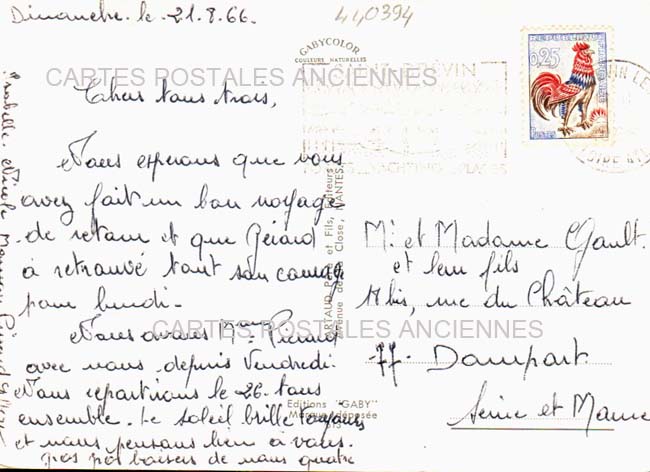 Dimanche. le. 21.8.66.
440394
GABYCOLOR
COULEURS NATURELLES
0,25
CARTES POSTALES ANCIENNES
Chers tous trois,
Nous espérons que vous
avez fait un bon voyage
de retour et que Gérard
à retrouvé tout son courage
pour lundi.
Nous avons Mme Picard
avec nous depuis Vendredi.
Nous repartirons le 26. tous
ensemble. Le soleil brille toujours
et nous pensons bien à vous.
gros baisers de nous quatre
Isabelle Nicole Maman
ARTAUD Père et Fils, Editeurs
Avenue de la Close, NANTES
Editions "GABY"
Marque déposée
Mr. et Madame Gault
et leur fils
rue du Château
77. Dampart
Seine et Marne
CARTES POSTALES ANCIENNES
YACHTING PLAGES